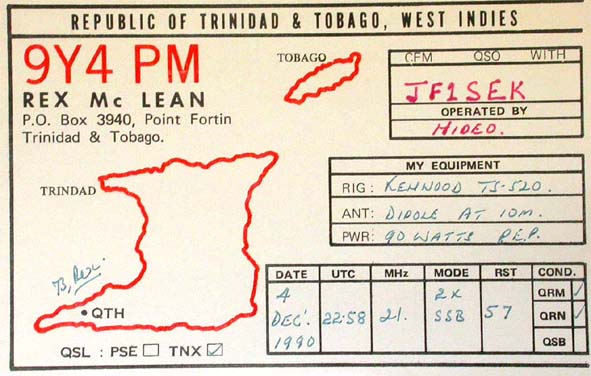 REPUBLIC OF TRINIDAD & TOBAGO, WEST INDIES
9Y4 PM
REX Mc LEAN
P.O. Box 3940, Point Fortin
Trinidad & Tobago.
TOBAGO
CFM QSO WITH
JF1SEK
OPERATED BY
HIDEO.
MY EQUIPMENT
RIG: KENWOOD TS-520.
ANT: DIPOLE AT 10M.
PWR: 90 WATTS P.E.P.
TRINDAD
73, Rex.
QTH
DATE UTC MHz MODE RST COND.
4 DEC'. 1990 22:58 21. 2X SSB 57
QRM ✓
QRN ✓
QSB
QSL : PSE ☐ TNX ☑